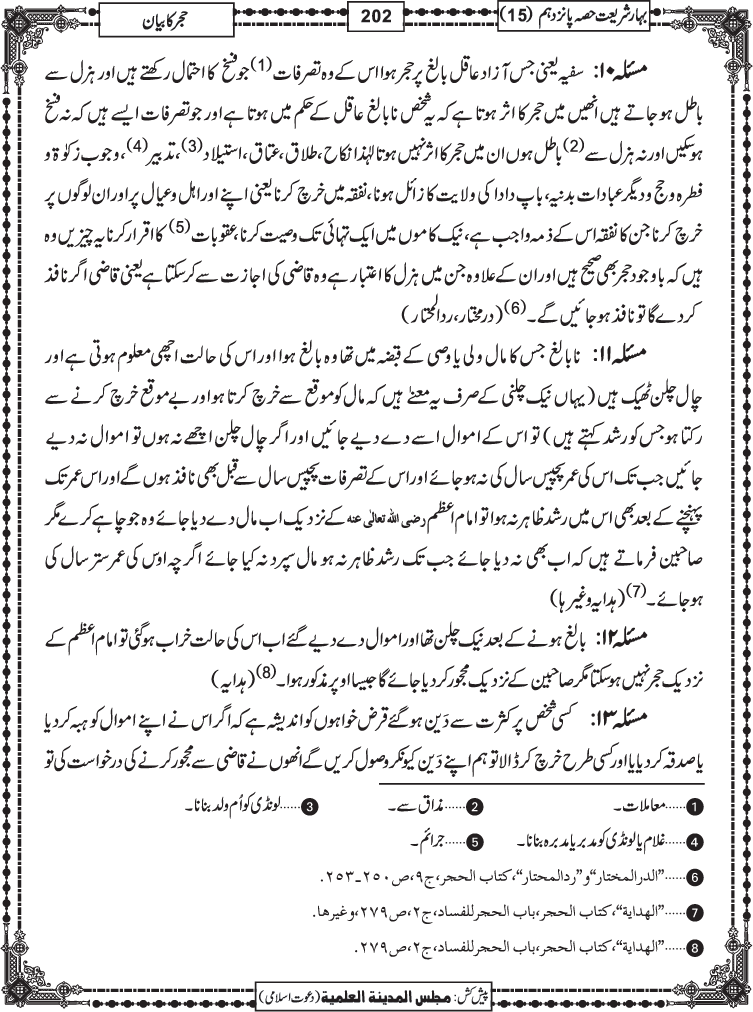 بہارشریعت حصہ پانزدہم (15)
202
حجر کا بیان
مسئلہ ۱۰: سفیہ یعنی جس آزاد عاقل بالغ پر حجر ہوا اس کے وہ تصرفات (1) جو فسخ کا احتمال رکھتے ہیں اور ہزل سے
باطل ہو جاتے ہیں انھیں میں حجر کا اثر ہوتا ہے کہ یہ شخص نابالغ عاقل کے حکم میں ہوتا ہے اور جو تصرفات ایسے ہیں کہ نہ فسخ
ہو سکیں اور نہ ہزل سے (2) باطل ہوں ان میں حجر کا اثر نہیں ہوتا لہٰذا نکاح، طلاق، عتاق، استیلاد (3)، تدبیر (4)، وجوب زکوٰۃ و
فطرہ و حج و دیگر عبادات بدنیہ، باپ دادا کی ولایت کا زائل ہونا، نفقہ میں خرچ کرنا یعنی اپنے اور اہل و عیال پر اور ان لوگوں پر
خرچ کرنا جن کا نفقہ اس کے ذمہ واجب ہے، نیک کاموں میں ایک تہائی تک وصیت کرنا، عقوبات (5) کا اقرار کرنا یہ چیزیں وہ
ہیں کہ باوجود حجر بھی صحیح ہیں اور ان کے علاوہ جن میں ہزل کا اعتبار ہے وہ قاضی کی اجازت سے کر سکتا ہے یعنی قاضی اگر نافذ
کردے گا تو نافذ ہو جائیں گے۔ (6) (درمختار، ردالمحتار)
مسئلہ ۱۱: نابالغ جس کا مال ولی یا وصی کے قبضہ میں تھا وہ بالغ ہوا اور اس کی حالت اچھی معلوم ہوتی ہے اور
چال چلن ٹھیک ہیں (یہاں نیک چلنی کے صرف یہ معنٰے ہیں کہ مال کو موقع سے خرچ کرتا ہو اور بے موقع خرچ کرنے سے
رکتا ہو جس کو رشد کہتے ہیں) تو اس کے اموال اسے دے دیے جائیں اور اگر چال چلن اچھے نہ ہوں تو اموال نہ دیے
جائیں جب تک اس کی عمر پچیس سال کی نہ ہو جائے اور اس کے تصرفات پچیس سال سے قبل بھی نافذ ہوں گے اور اس عمر تک
پہنچنے کے بعد بھی اس میں رشد ظاہر نہ ہوا تو امام اعظم رضی اللہ تعالٰی عنہ کے نزدیک اب مال دے دیا جائے وہ جو چاہے کرے مگر
صاحبین فرماتے ہیں کہ اب بھی نہ دیا جائے جب تک رشد ظاہر نہ ہو مال سپرد نہ کیا جائے اگرچہ اوس کی عمر ستر سال کی
ہو جائے۔ (7) (ہدایہ وغیرہا)
مسئلہ ۱۲: بالغ ہونے کے بعد نیک چلن تھا اور اموال دے دیے گئے اب اس کی حالت خراب ہوگئی تو امام اعظم کے
نزدیک حجر نہیں ہو سکتا مگر صاحبین کے نزدیک مجور کر دیا جائے گا جیسا اوپر مذکور ہوا۔ (8) (ہدایہ)
مسئلہ ۱۳: کسی شخص پر کثرت سے دَین ہو گئے قرض خواہوں کو اندیشہ ہے کہ اگر اس نے اپنے اموال کو ہبہ کر دیا
یا صدقہ کر دیا یا اور کسی طرح خرچ کر ڈالا تو ہم اپنے دَین کیونکر وصول کریں گے انھوں نے قاضی سے مجور کرنے کی درخواست کی تو
1 ......معاملات۔ 2 ......مذاق سے۔ 3 ......لونڈی کو اُم ولد بنانا۔
4 ......غلام یا لونڈی کو مدبر یا مدبرہ بنانا۔ 5 ......جرائم۔
6 ......”الدرالمختار“ و ”ردالمحتار“، کتاب الحجر، ج۹، ص۲۵۰-۲۵۳.
7 ......”الهداية“، کتاب الحجر، باب الحجر للفساد، ج۲، ص۲۷۹، وغيرها.
8 ......”الهداية“، کتاب الحجر، باب الحجر للفساد، ج۲، ص۲۷۹.
پیش کش: مجلس المدینة العلمیة (دعوت اسلامی)